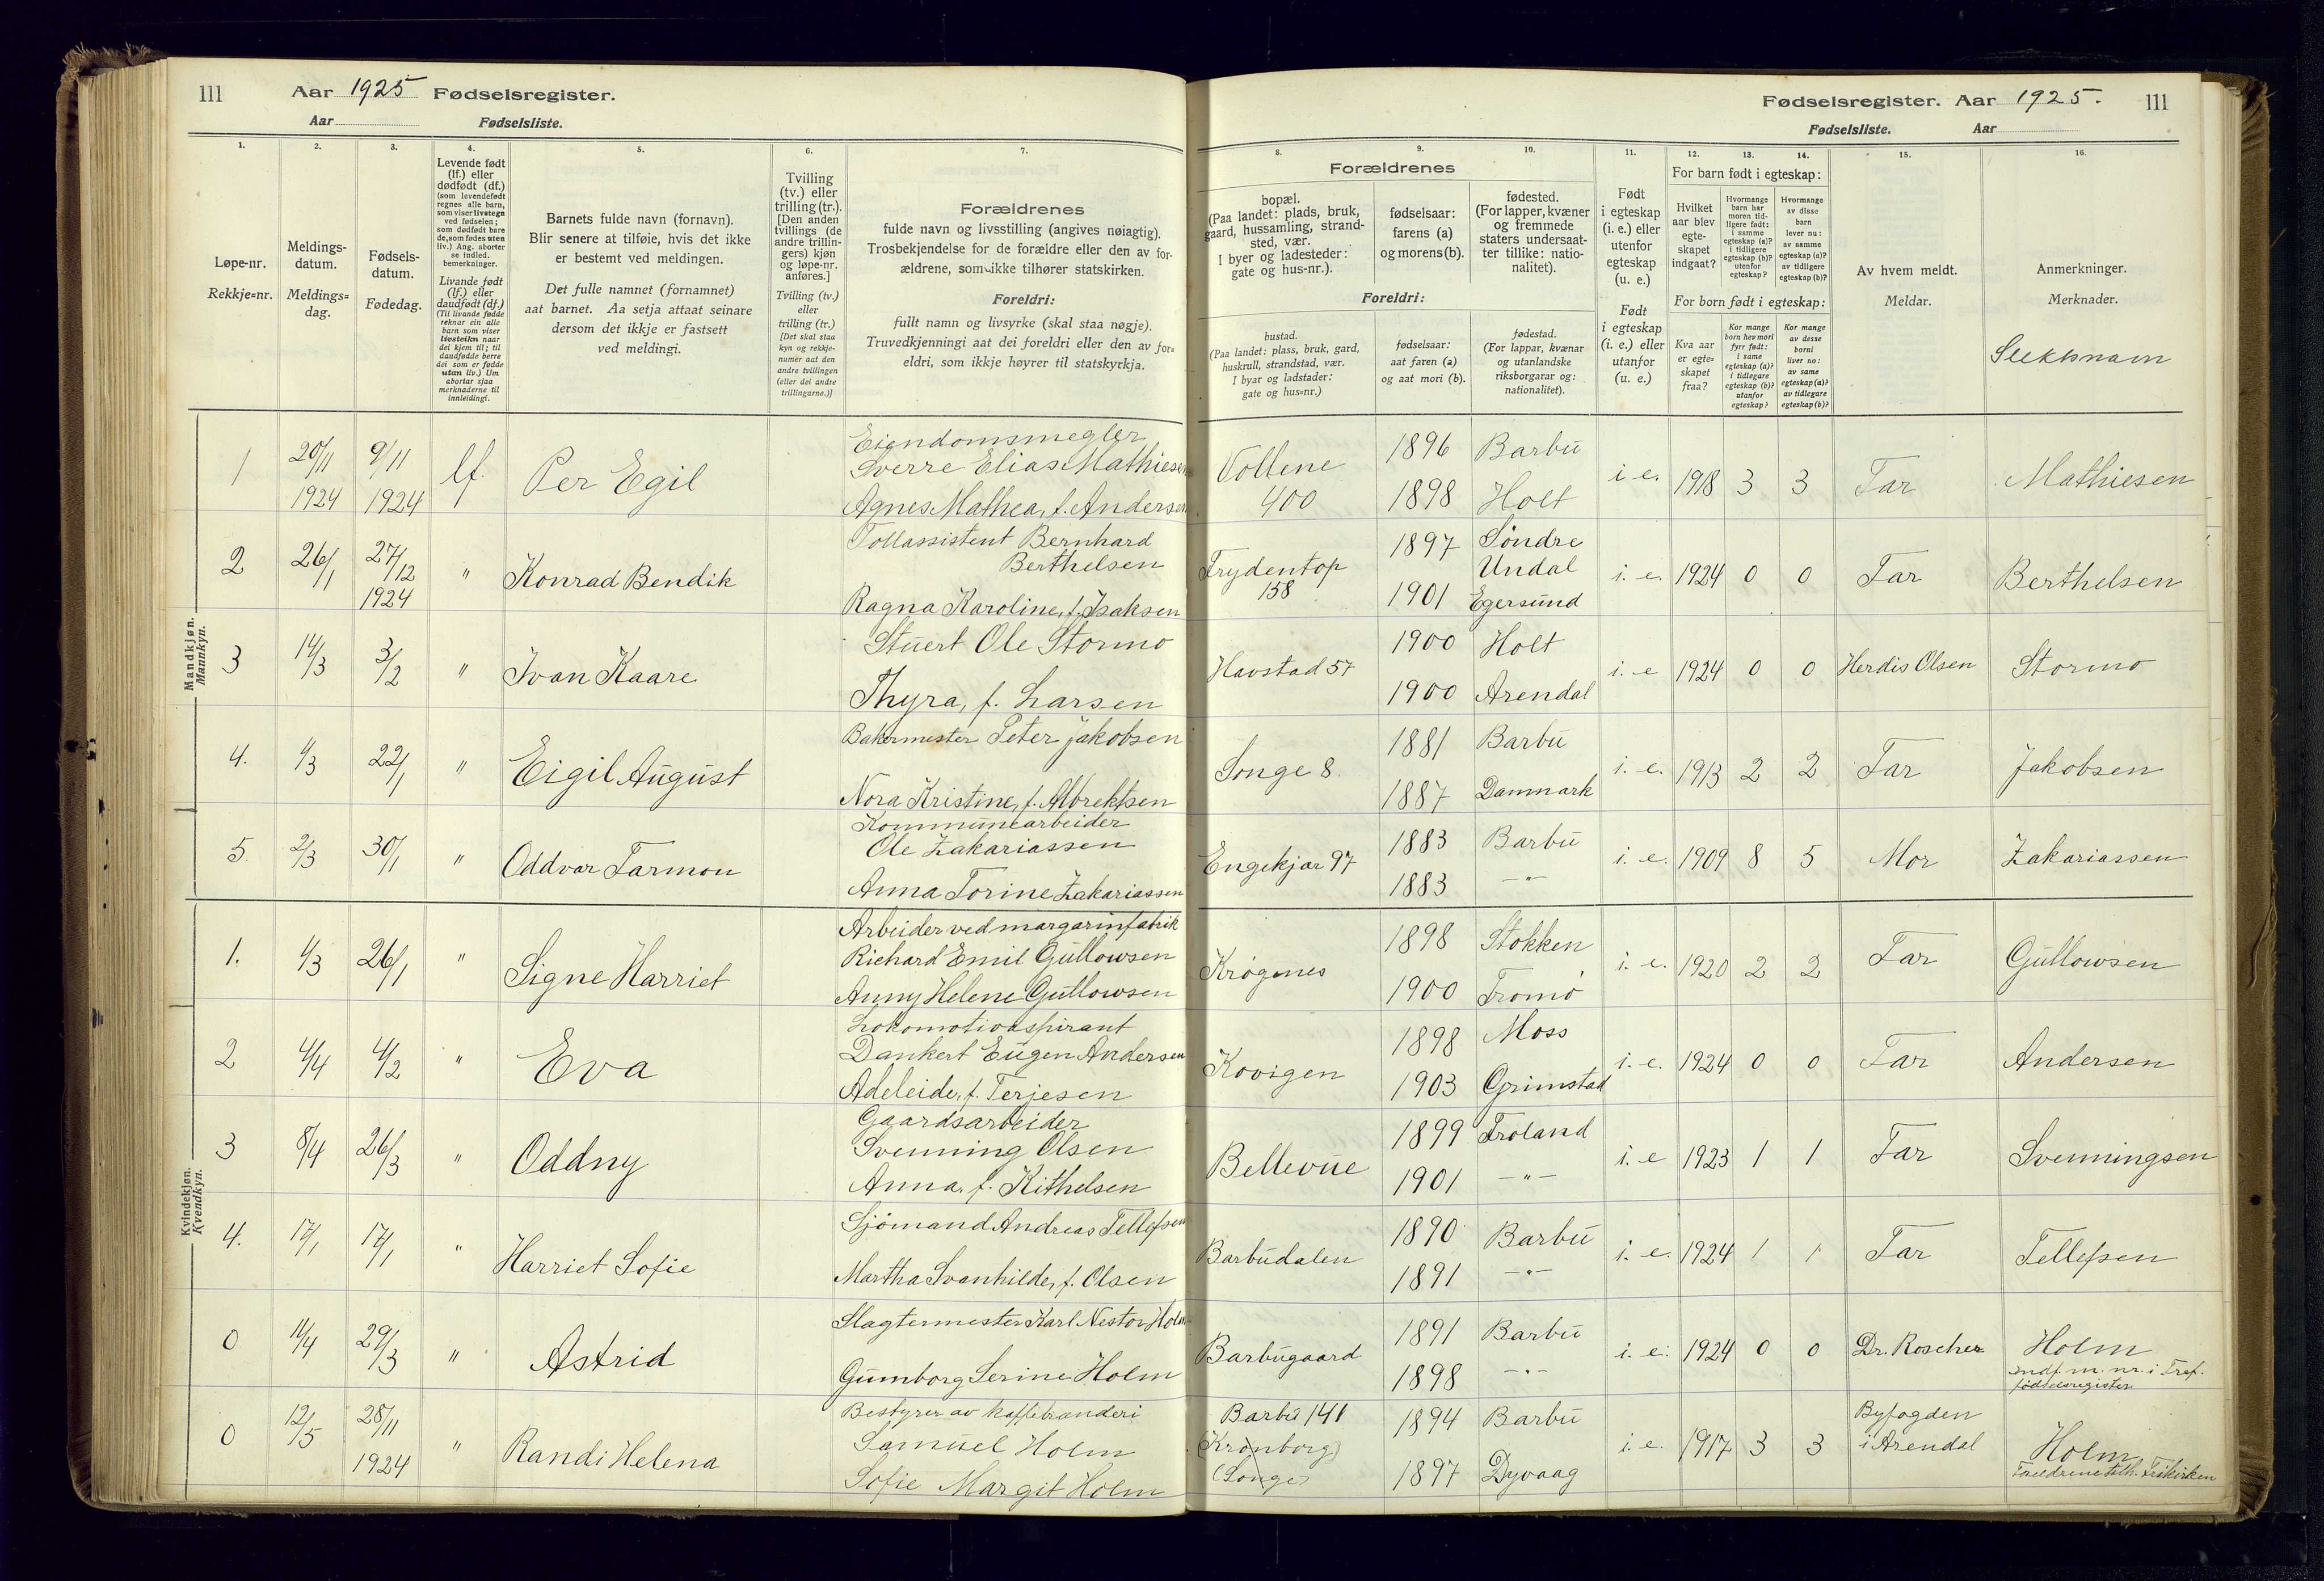 111 Aar 1925 Fødselsregister.
Aar Fødselsliste.
Fødselsregister. Aar 1925. 111
Fødselsliste. Aar
1.
Løpe-nr.
Rekkje=nr.
2.
Meldings-
datum.
Meldings=
dag.
3.
Fødsels-
datum.
Fødedag.
4.
Levende født
(lf.) eller
dødfødt (df.)
(som levendefødt
regnes alle barn,
som viser livstegn
ved fødselen;
som dødfødt bare
de, som fødes uten
liv.) Ang. aborter
se indled.
bemerkninger.
Livande født
(lf.) eller
daudfødt (df.)
(Til livande fødde
reknar ein alle
barn som viser
livsteikn naar
dei kjem til; til
daudfødde berre
dei som er fødde
utan liv.) Um
abortar sjaa
merknaderne til
innleidingi.
5.
Barnets fulde navn (fornavn).
Blir senere at tilføie, hvis det ikke
er bestemt ved meldingen.
Det fulle namnet (fornamnet)
aat barnet. Aa setja attaat seinare
dersom det ikkje er fastsett
ved meldingi.
6.
Tvilling
(tv.) eller
trilling (tr.).
[Den anden
tvillings (de
andre trillin-
gers) kjøn
og løpe-nr.
anføres.]
Tvilling (tv.)
eller
trilling (tr.)
[Det skal staa
kyn og rekkje-
numer aat den
andre tvillingen
(eller dei andre
trillingarne.)]
7.
Forældrenes
fulde navn og livsstilling (angives nøiagtig).
Trosbekjendelse for de forældre eller den av for-
ældrene, som ikke tilhører statskirken.
Foreldri:
fullt namn og livsyrke (skal staa nøgje).
Truvedkjenningi aat dei foreldri eller den av for=
eldri, som ikkje høyrer til statskyrkja.
Forældrenes
8.
bopæl.
(Paa landet: plads, bruk,
gaard, hussamling, strand-
sted, vær.
I byer og ladesteder:
gate og hus-nr.).
9.
fødselsaar:
farens (a)
og morens (b).
10.
fødested.
(For lapper, kvæner
og fremmede
staters undersaat-
ter tillike: natio-
nalitet).
Foreldri:
bustad.
(Paa landet: plass, bruk, gard,
huskrull, strandstad, vær.
I byar og ladstader:
gate og hus=nr.)
fødselsaar:
aat faren (a)
og aat mori (b).
fødestad.
(For lappar, kvænar
og utanlandske
riksborgarar og:
nationalitet).
11.
Født
i egteskap
(i. e.) eller
utenfor
egteskap
(u. e.)
Født
i egteskap
(i. e.) eller
utanfor
(u. e.)
12. 13. 14.
For barn født i egteskap:
Hvilket
aar blev
egte-
skapet
indgaat?
Hvormange
barn har
moren tid-
ligere født:
i samme
egteskap (a)?
i tidligere
egteskap (b)?
utenfor
egteskap?
Hvormange
av disse
barn
lever nu:
av samme
egteskap (a)?
av tidligere
egteskap (b)?
For born født i egteskap:
Kva aar
er egte-
skapet
fraa?
Kor mange
born hev mori
fyrr født:
i same
egteskap (a)?
i tidlegare
egteskap (b)?
utanfor
egteskap?
Kor mange
av desse
borni
liver no:
av same
egteskap (a)?
av tidlegare
egteskap (b)?
15.
Av hvem meldt.
Meldar.
16.
Anmerkninger.
Merknader.
Slektsnavn
Mandkjøn.
Mannkyn.
1 20/11 1924 9/11 1924 lf. Per Egil
Eiendomsmegler
Sverre Elias Mathiesen
Agnes Mathea, f. Andersen
Vollene 400 1896 Barbu 1898 Holt i e. 1918 3 3 Far Mathiesen
2 26/1 27/12 1924 " Konrad Bendik
Tollassistent Bernhard
Berthelsen
Ragna Karoline, f. Isaksen
Frydentop 158 1897 Søndre Undal 1901 Egersund i. e. 1924 0 0 Far Berthelsen
3 14/3 3/2 " Ivan Kaare
Stuert Ole Stormo
Thyra, f. Larsen
Havstad 57 1900 Holt 1900 Arendal i. e 1924 0 0 Herdis Olsen Stormo
4. 4/3 22/1 " Eigil August
Bakermester Peter Jakobsen
Nora Kristine, f. Albrektsen
Songe 8. 1881 Barbu 1887 Danmark i. e. 1913 2 2 Far Jakobsen
5. 2/3 30/1 " Oddvar Farmon
Kommunearbeider
Ole Zakariassen
Anna Torine Zakariassen
Engekjær 97 1883 Barbu 1883 —"— i. e. 1909 8 5 Mor Zakariassen
Kvindekjøn.
Kvendkyn.
1. 4/3 26/1 " Signe Harriet
Arbeider ved margarinfabrik
Richard Emil Gullowsen
Anny Helene Gullowsen
Krøgenes 1898 Stokken 1900 Tromø i. e. 1920 2 2 Far Gullowsen
2 4/4 4/2 " Eva
Lokomotivaspirant
Dankert Eugen Andersen
Adeleide, f. Terjesen
Kovigen 1898 Moss 1903 Grimstad i. e. 1924 0 0 Far Andersen
3 8/4 26/3 " Oddny
Gaardsarbeider
Svenning Olsen
Anna, f. Kithelsen
Bellevue 1899 Froland 1901 —"— i. e 1923 1 1 Far Svenningsen
4. 17/1 17/1 " Harriet Sofie
Sjømand Andreas Tellefsen
Martha Svanhilde, f. Olsen
Barbudalen 1890 Barbu 1891 —"— i. e. 1924 1 1 Far Tellefsen
0 11/4 29/3 " Astrid
Slagtermester Karl Nestor Holm
Gunnborg Serine Holm
Barbugaard 1891 Barbu 1898 —"— i. e. 1924 0 0 Dr. Roscher Holm
indf. m. nr. i Tref.
fødselsregister
0 12/5 28/11 1924 " Randi Helena
Bestyrer av kaffebrænderi
Samuel Holm
Sofie Margit Holm
Barbu 141 (Kronborg) (Songe) 1894 Barbu 1897 Dyvaag i. e. 1917 3 3 Byfogden i Arendal Holm
Foreldrene tilh. Frikirken